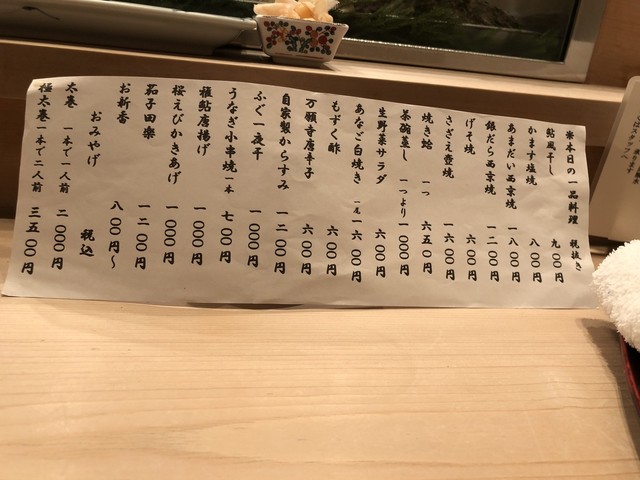 ※本日の一品料理 税抜き
鮎風干し 九〇〇円
かます塩焼 八〇〇円
あまだい西京焼 一八〇〇円
銀だら西京焼 一二〇〇円
げそ焼 六〇〇円
さざえ壺焼 一六〇〇円
焼き蛤 一つ 六五〇円
茶碗蒸し 一つより 一〇〇〇円
生野菜サラダ 六〇〇円
あなご白焼き 一尾 一六〇〇円
もずく酢 六〇〇円
万願寺唐辛子 六〇〇円
自家製からすみ 一二〇〇円
ふぐ一夜干 一〇〇〇円
うなぎ小串焼 一本 七〇〇円
稚鮎唐揚げ 一〇〇〇円
桜えびかきあげ 一〇〇〇円
茄子田楽 一二〇〇円
お新香 八〇〇円〜
おみやげ 税込
太巻 一本で一人前 二〇〇〇円
極太巻 一本で二人前 三五〇〇円